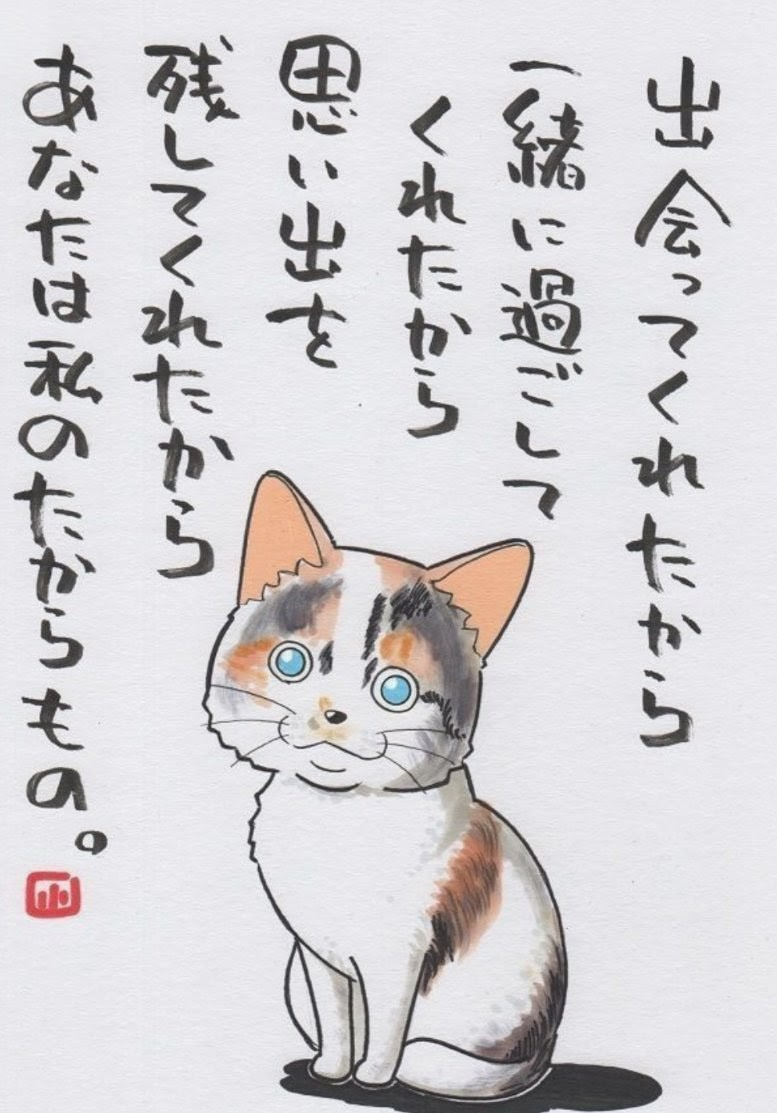 出会ってくれたから
一緒に過ごして
くれたから
思い出を
残してくれたから
あなたは私のたからもの。